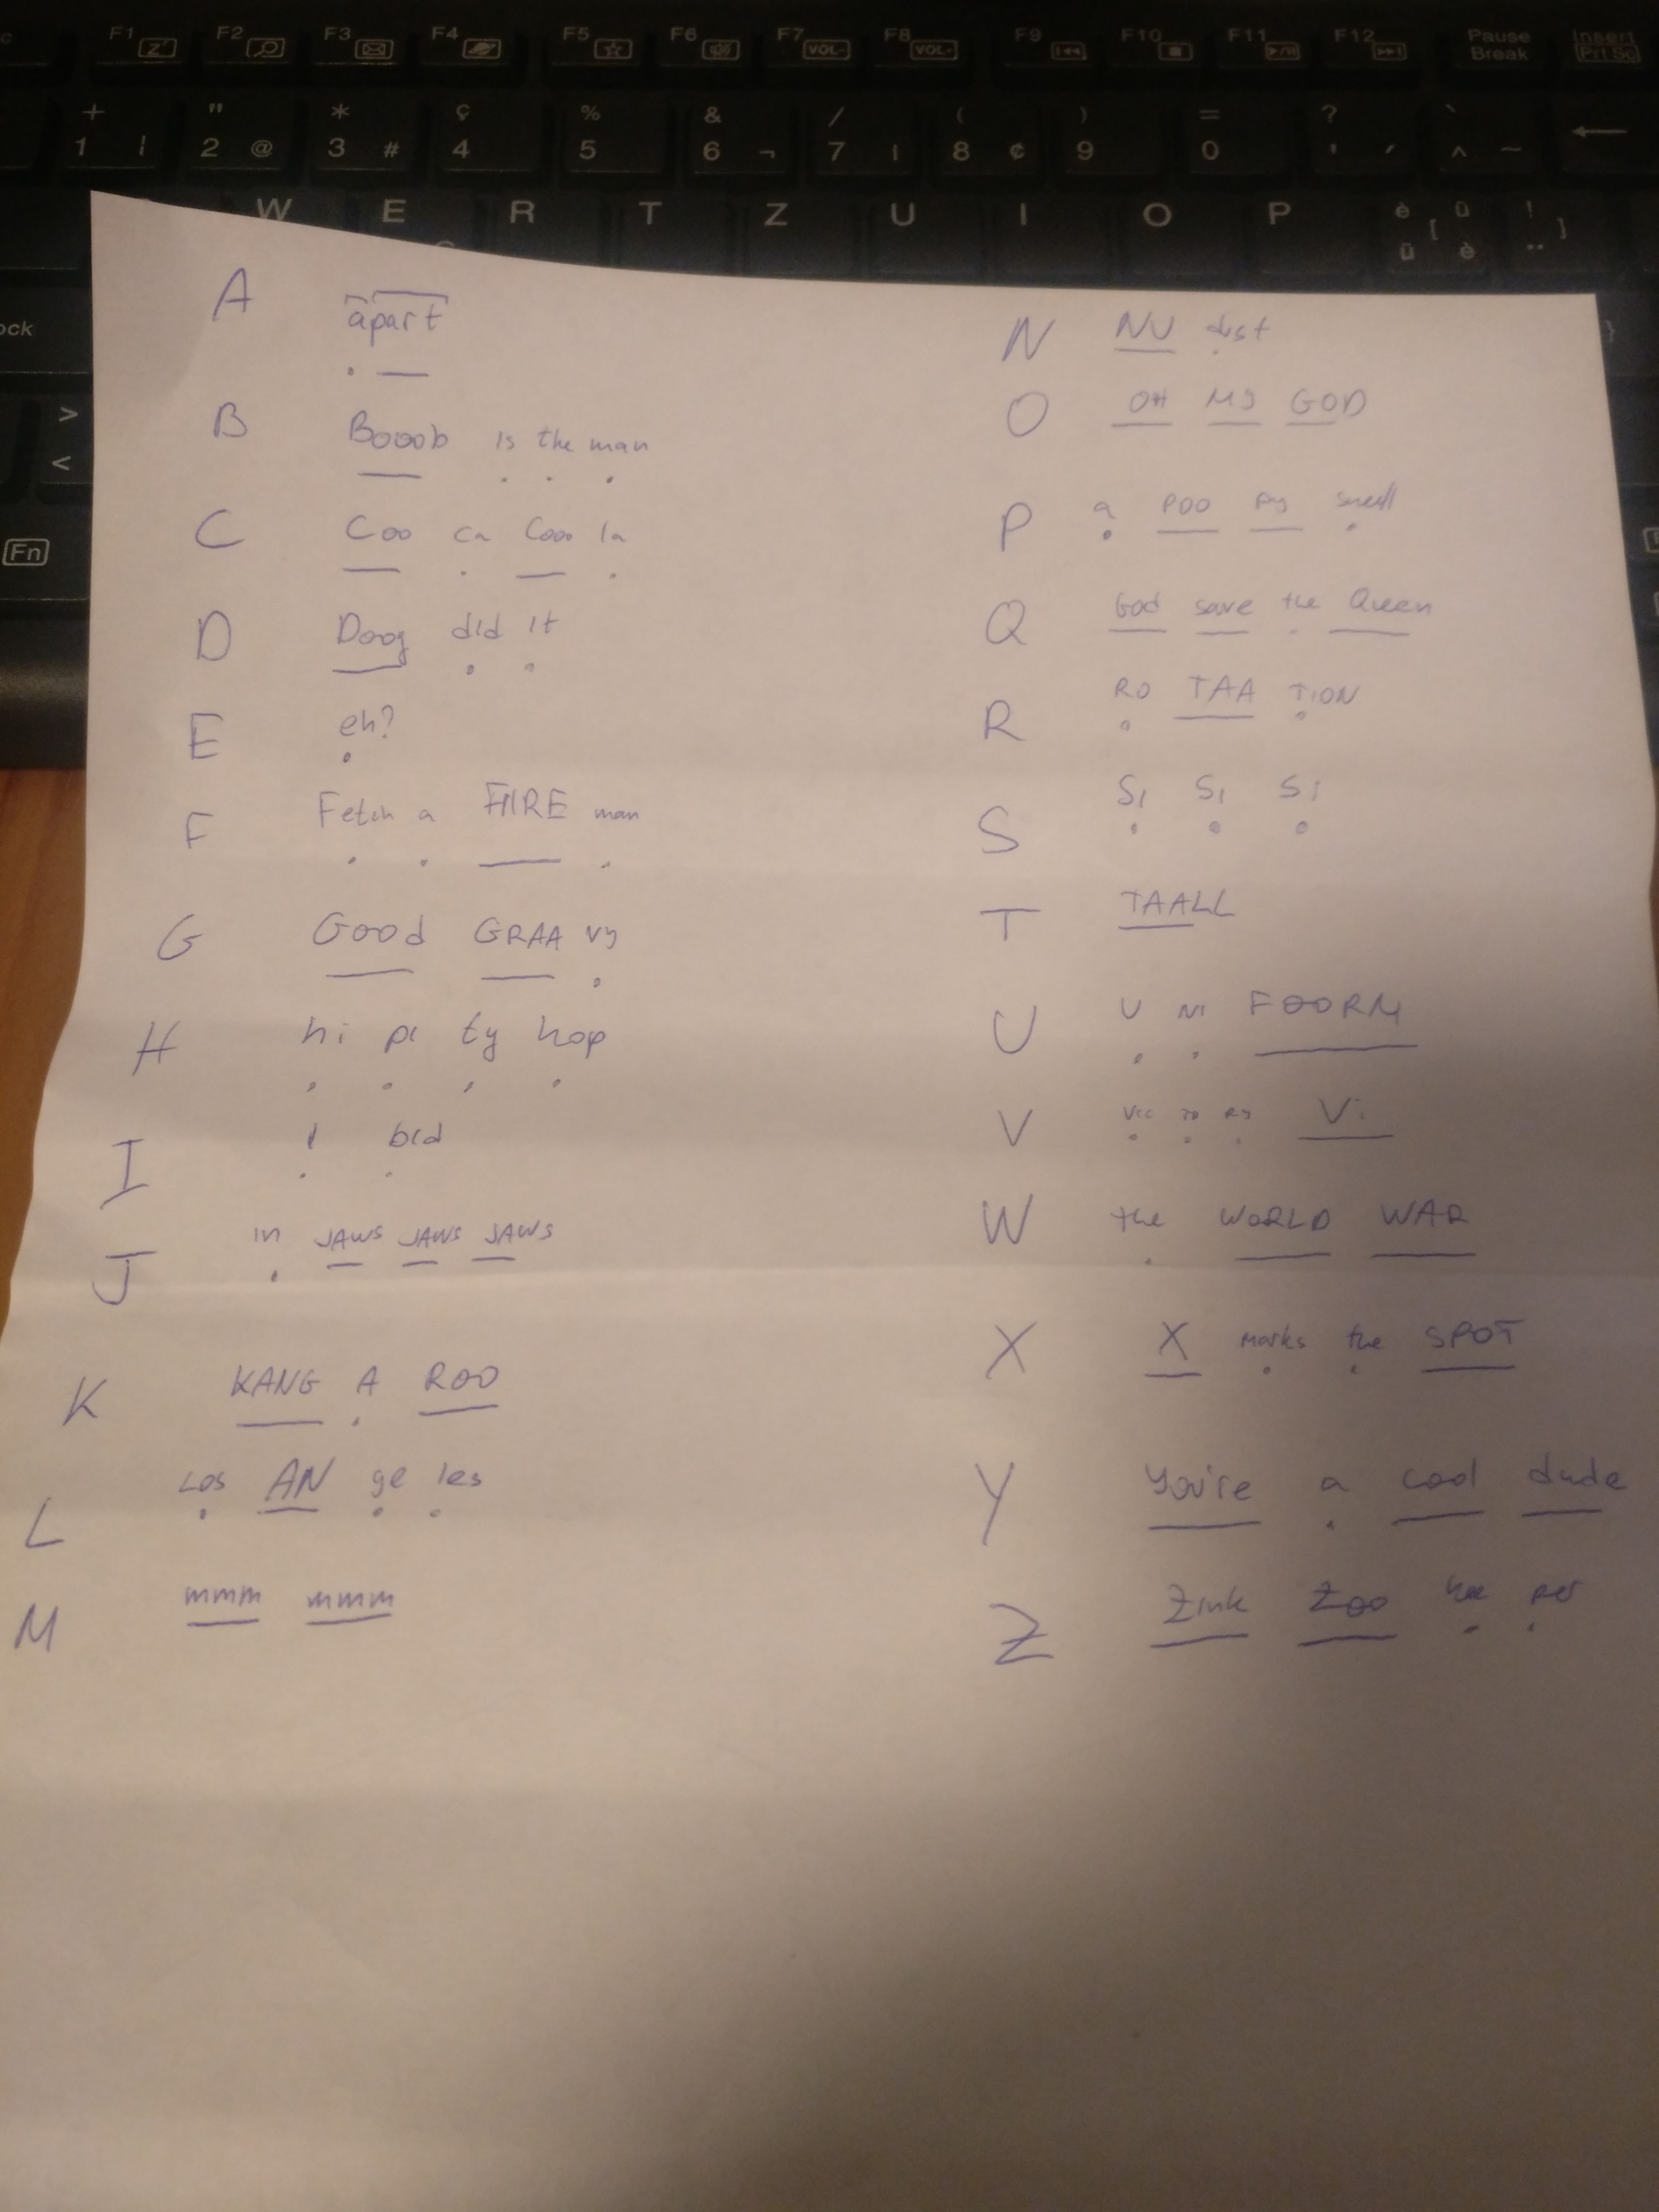 F1 F2 F3 F4 F5 F6 F7 VOL- F8 VOL+ F9 F10 F11 F12 Pause Break Insert Prt Sc
+ 1 " 2 @ * 3 # ç 4 % 5 & 6 ¬ / 7 ( 8 ¢ ) 9 = 0 ? ' ´ ` ^ ~
W E R T Z U I O P è ü [ ü è ! ¨ ]
ock
> <
Fn
A apart
B Booob is the man
C Coo ca Cooo la
D Doog did it
E eh?
F Fetch a FIIRE man
G Good GRAA vy
H hi pi ty hop
I I bid
J in JAWS JAWS JAWS
K KANG A ROO
L Los AN ge les
M mmm mmm
N NU dist
O OH MY GOD
P a POO py smell
Q God save the Queen
R RO TAA TION
S Si Si Si
T TAALL
U U NI FOORM
V Vic TO RY Vi
W the WORLD WAR
X X marks the SPOT
Y You're a cool dude
Z Zink Zoo kee per